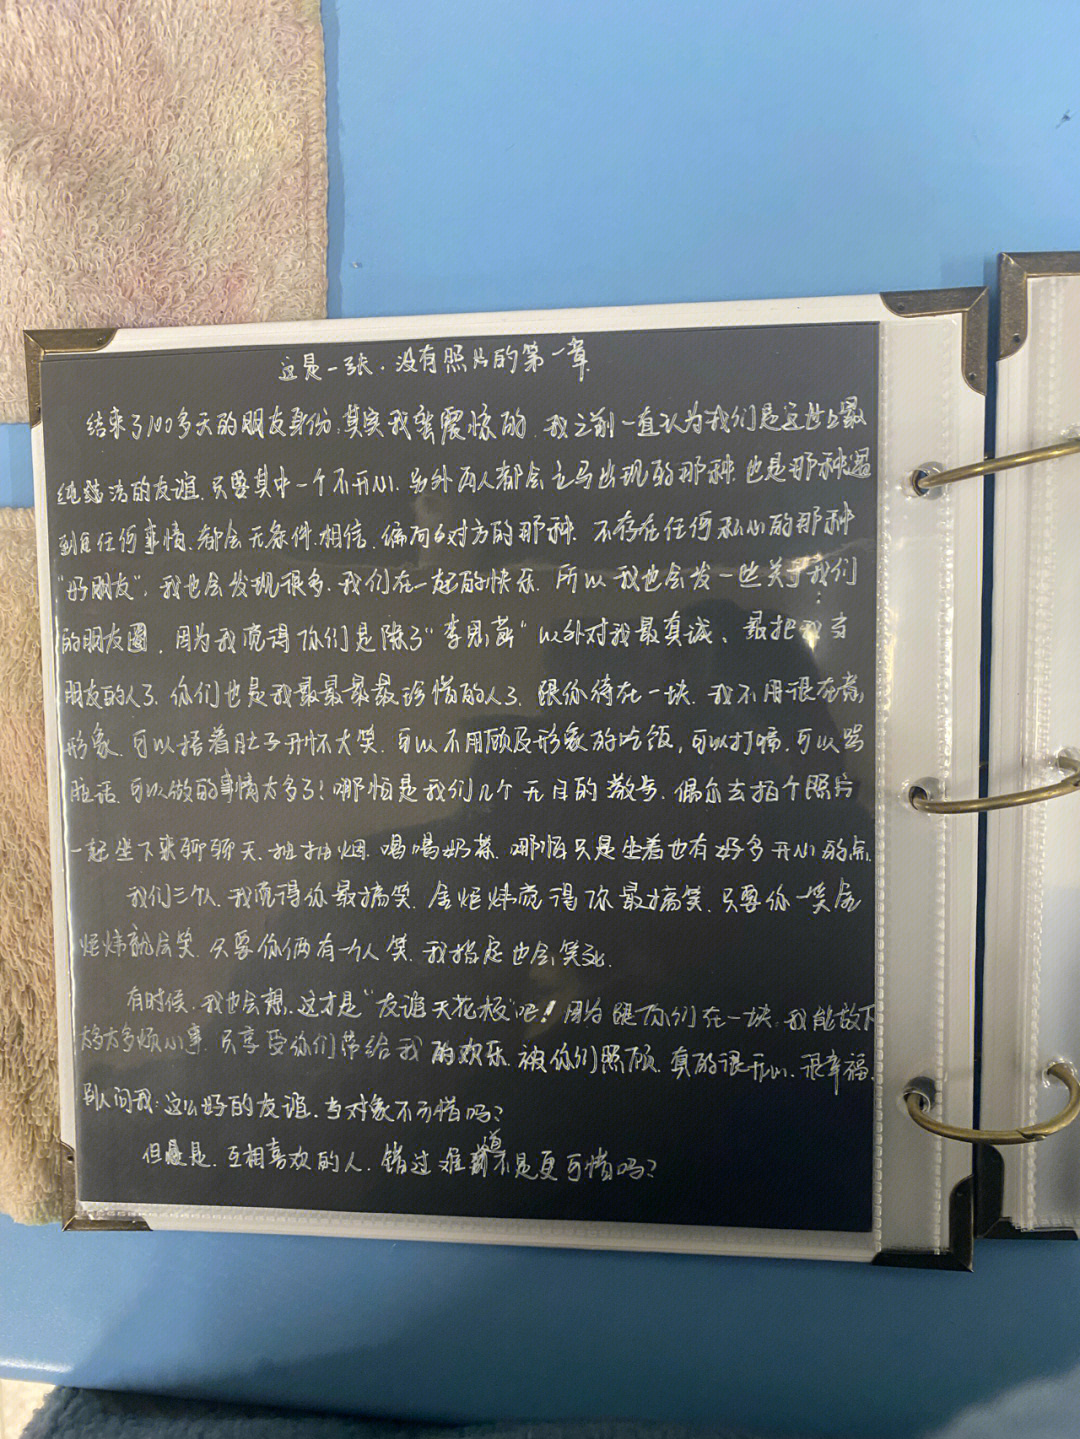 这是一张.没有照片的第一章
结束了100多天的朋友身份,其实我蛮震惊的.我之前一直认为我们是这世上最
纯洁的友谊.只要其中一个不开心.另外两人都会立马出现的那种.也是那种遇
到任何事情.都会无条件.相信.偏向对方的那种.不存在任何私心的那种
"好朋友",我也会发现很多.我们在一起的快乐.所以我也会发一些关于我们
的朋友圈.因为我觉得你们是除了"李思" 以外对我最真诚、最把我当
朋友的人了.你们也是我最最最最珍惜的人了.跟你待在一块.我不用很在意
形象.可以捂着肚子开怀大笑.可以不用顾及形象的吃饭,可以打嗝.可以骂
脏话.可以做的事情太多了!哪怕是我们几个无目的散步.偶尔去拍个照片
一起坐下来聊聊天.抽抽烟.喝喝奶茶.哪怕只是坐着也有好多开心的点.
我们三个人.我觉得你最搞笑.金炬炜觉得你最搞笑.只要你一笑金
炬炜就会笑.只要你俩有一个人笑.我指定也会笑死.
有时候.我也会想.这才是"友谊天花板"吧!因为跟你们在一块.我能放下
太多太多烦心事.只享受你们带给我的欢乐.被你们照顾.真的很开心.很幸福.
别人问我:这么好的友谊.当对象不可惜吗?
但是.互相喜欢的人.错过难道不是更可惜吗?